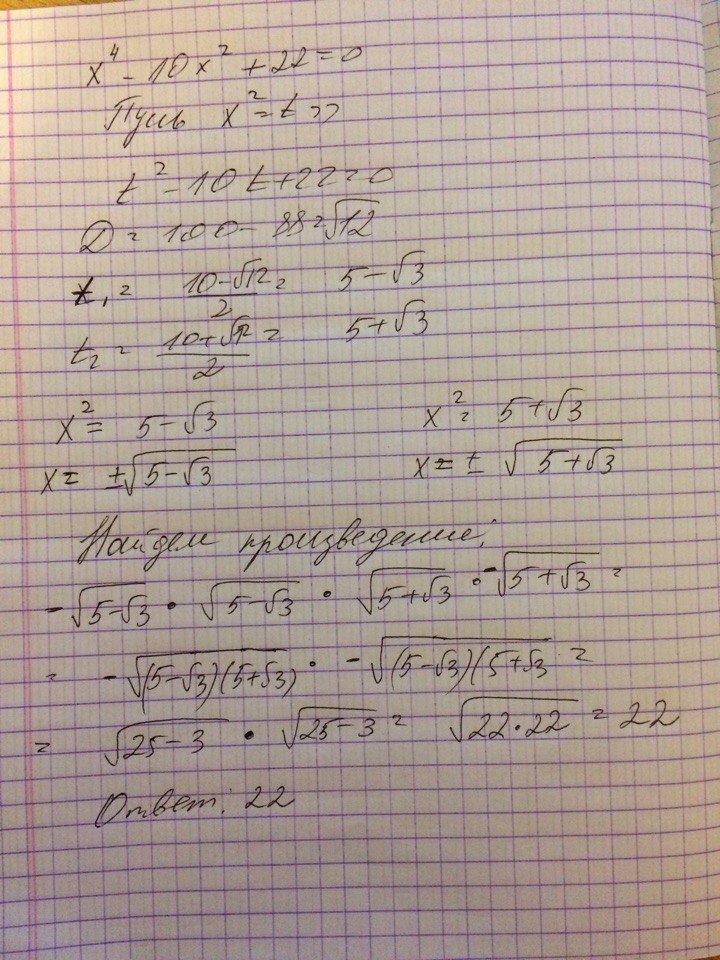 x⁴ - 10x² + 22 = 0
Пусть x² = t >>
t² - 10t + 22 = 0
D = 100 - 88 = √12
t₁ = (10-√12)/2 = 5 - √3
t₂ = (10+√12)/2 = 5 + √3
x² = 5 - √3 x² = 5 + √3
x = ±√(5-√3) x = ± √(5+√3)
Найдем произведение:
-√(5-√3) • √(5-√3) • √(5+√3) • -√(5+√3) =
= -√((5-√3)(5+√3)) • -√((5-√3)(5+√3) =
= √(25-3) • √(25-3) = √(22•22) = 22
Ответ: 22